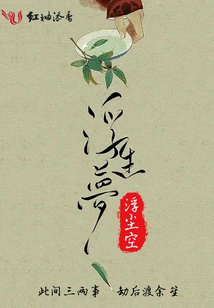 红袖添香
浮生夢
浮尘空
此间三两事 劫后渡余笙